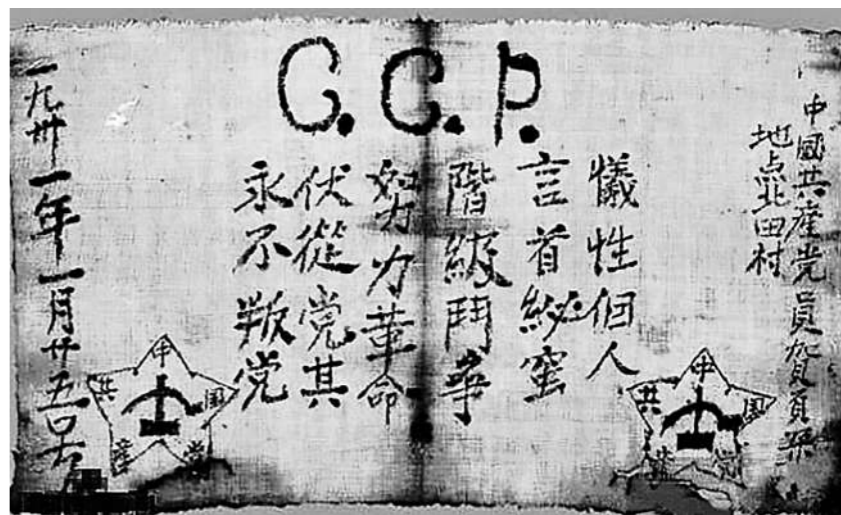 C.C.P.
中國共產党員賀頁朶
地点北田村
犧性個人
言首秘蜜
階級鬥爭
努力革命
伏從党其
永不叛党
一九卅一年一月廿五
中国共產党
中国共產党